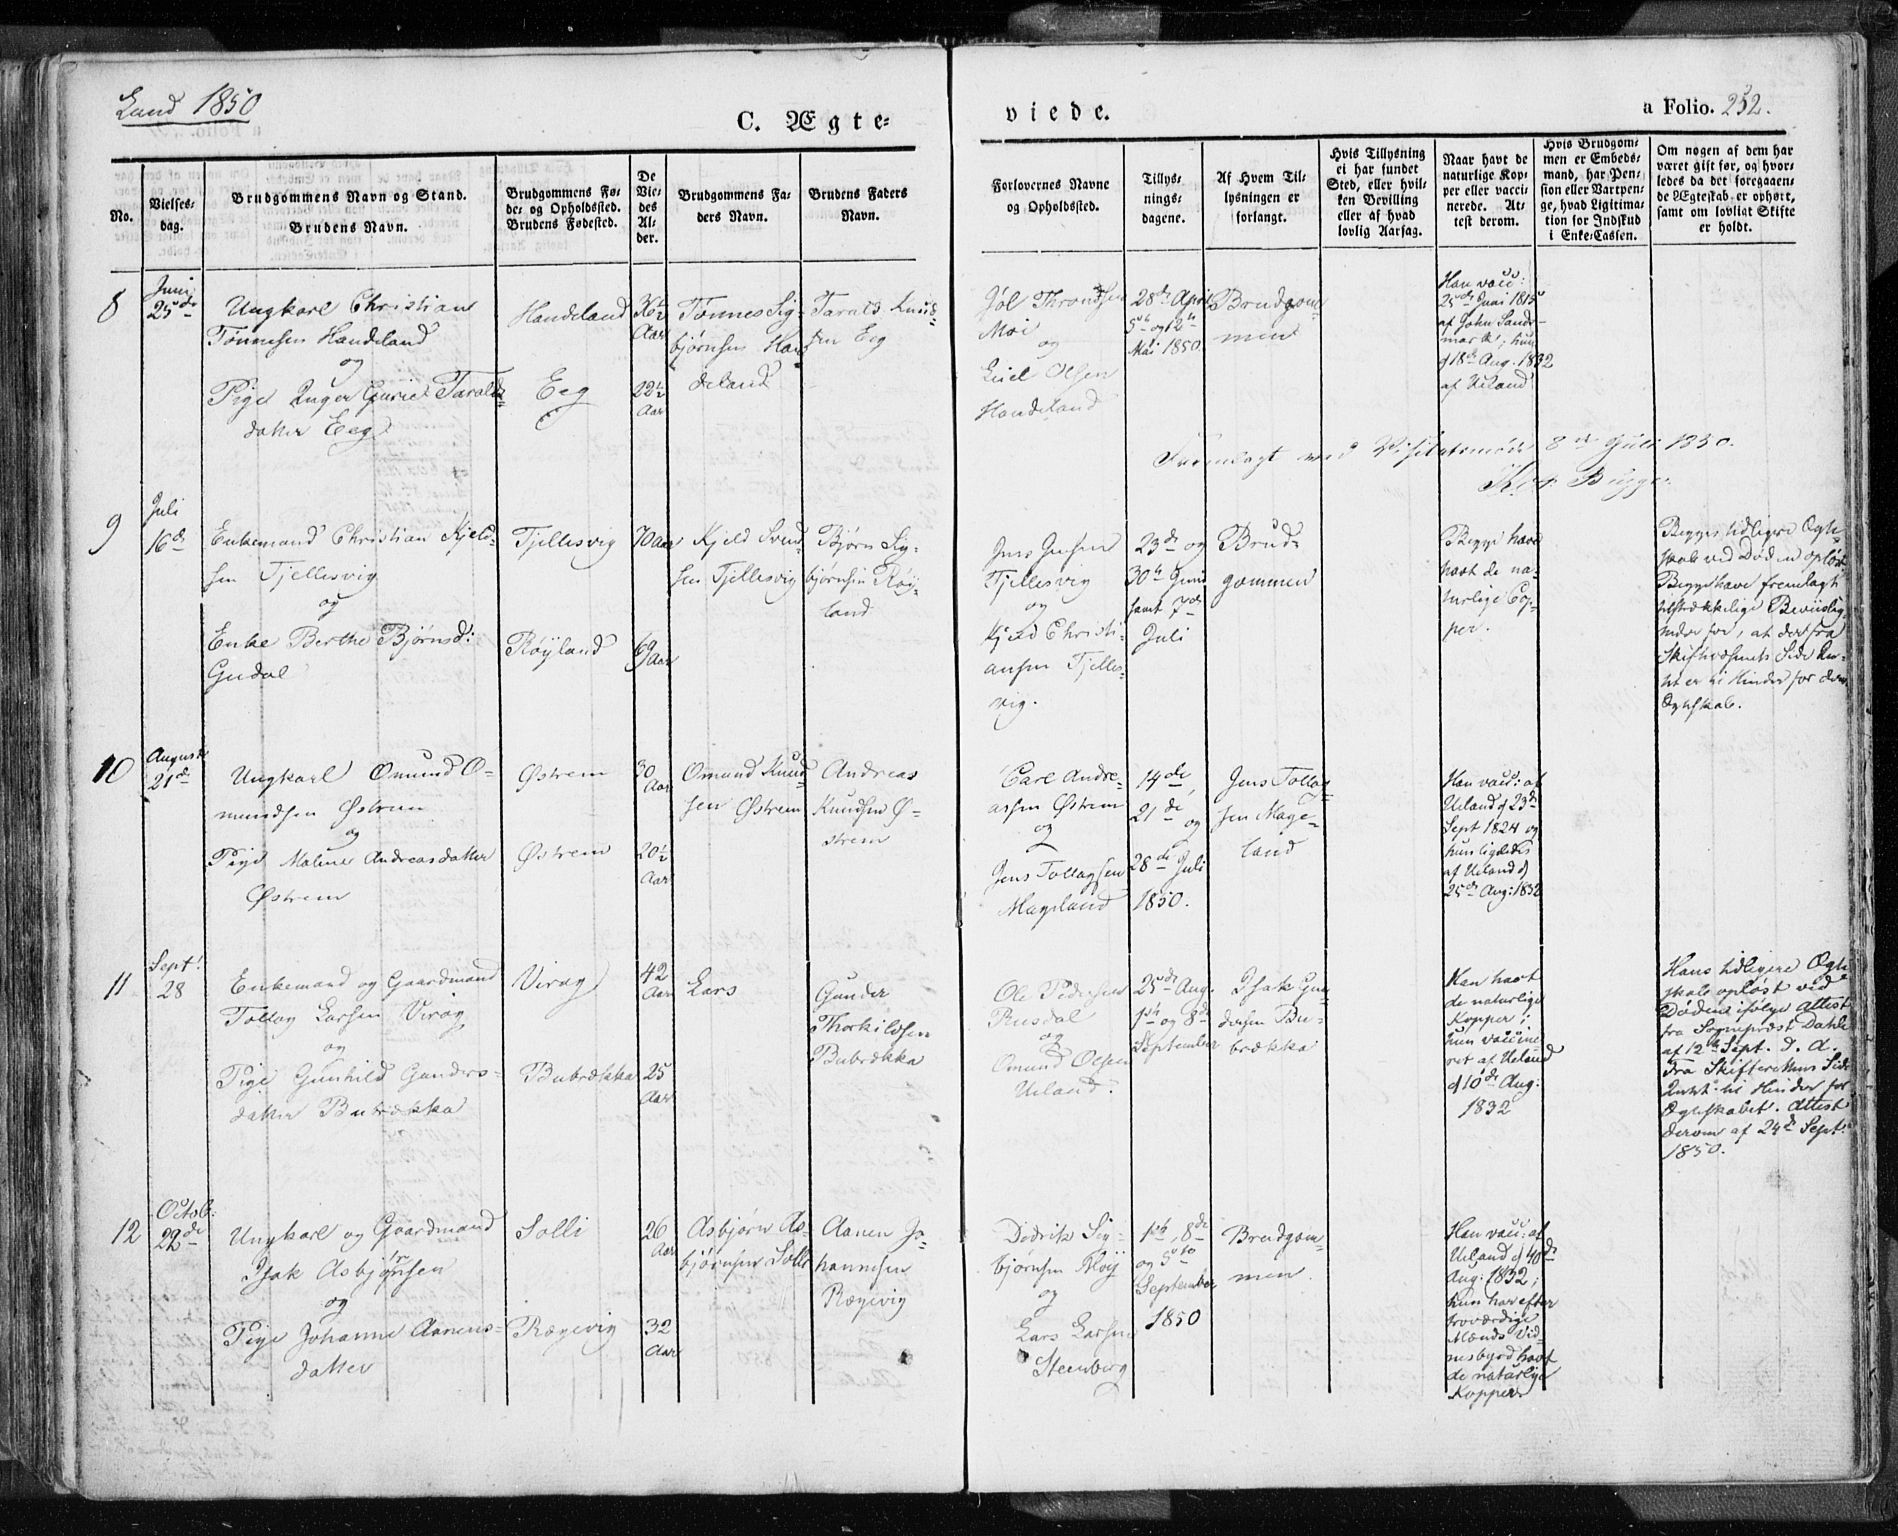 Lund 1850
C. Ægte-
viede.
a Folio. 252.
No.
Vielses-
dag.
Brudgommens Navn og Stand.
Brudens Navn.
Brudgommens Fø-
de- og Opholdssted.
Brudens Fødested.
De
Vie-
des
Al-
der.
Brudgommens Fa-
ders Navn.
Brudens Faders
Navn.
Forlovernes Navne
og Opholdssted.
Tillys-
nings-
dagene.
Af Hvem Til-
lysningen er
forlangt.
Hvis Tillysning
ei har fundet
Sted, eller hvil-
ken Bevilling
eller af hvad
lovlig Aarsag.
Naar havt de
naturlige Kop-
per eller vacci-
nerede. At-
test derom.
Hvis Brudgom-
men er Embeds-
mand, har Pen-
sion eller Vartpen-
ge, hvad Ligitima-
tion for Indskud
i Enke-Cassen.
Om nogen af dem har
været gift før, og hvor-
ledes da det foregaaen-
de Ægteskab er ophørt,
samt om lovligt Skifte
er holdt.
8
Juni
25de
Ungkarl Christian
Tønnesen Handeland
og
Pige Inger Gurie Taralds-
datter Eeg
Handeland
Eeg
36½
Aar
22½
Aar
Tønnes Sig-
bjørnsen Han-
deland
Tarald Knud-
sen Eeg
Jøl Throndsen
Moi
og
Eliel Olsen
Handeland
28de April
5te og 12te
Mai 1850
Brudgom-
men
Han vacc:
25de Juni 1815
af John Sands-
mark; hun
d 18de Aug. 1832
af Ueland
Fremlagt ved Visitatsmøde 8de Juli 1850.
Bugge.
9
Juli
16de
Enkemand Christian Kjeld-
sen Tjellesvig
og
Enke Berthe Bjørnsd:
Gudal
Tjellesvig
Røyland
70 Aar
69 Aar
Kjeld Svend-
sen Tjellesvig
Bjørn Sig-
bjørnsen Røy-
land
Jens Jensen
Tjellesvig
og
Kjeld Christi-
ansen Tjelles-
vig.
23de og
30te Juni
samt 7de
Juli
Brud-
gommen
Begge have
havt de na-
turlige Cop-
per.
Begges tidligere Ægte-
skab ved Døden opløst.
Begge have fremlagt
tilstrækkelige Beviislig-
heder for, at der fra
Skiftevæsenets Side In-
tet er til Hinder for deres
Ægteskab.
10
August
21de
Ungkarl Omund O-
mundsen Østrem
og
Pige Malene Andreasdatter
Østrem
Østrem
Østrem
30
Aar
20½
Aar
Omund Knud-
sen Østrem
Andreas
Knudsen Ø-
strem
Carl Andre-
assen Østrem
og
Jens Tollagsen
Mageland
14de,
21de og
28de Juli
1850.
Jens Tollag-
sen Mage-
land
Han vacc: af
Ueland d 23de
Sept 1824 og
hun ligeledes
af Ueland d
25de Aug: 1832
11
Sept:
28
Enkemand og Gaardmand
Tollag Larsen Virag
og
Pige Gunhild Gunders-
datter Bubrækka
Virag
Bubrækka
42
Aar
25
Aar
Lars
Gunder
Thorkildsen
Bubrækka
Ole Pedersen
Rusdal
og
Omund Olsen
Ueland.
25de Aug.
1ste og 8de
September
Isak Gun-
dersen Bu-
brækka
Han havt
de naturlige
Kopper;
hun vaccine-
ret af Ueland
d 10de Aug:
1832
Hans tidligere Ægte-
skab opløst ved
Døden ifølge Attest
fra Sognepræst Dahle
af 12te Sept. d. A.
Fra Skifterettens Side
Intet til Hinder for
Ægteskabet. Attest
derom af 24de Sept:
1850.
12
Octob:
22de
Ungkarl og Gaardmand
Isak Asbjørnsen
og
Pige Johanne Aanens-
datter
Solli
Rægevig
26
Aar
32
Aar
Asbjørn As-
bjørnsen Solli
Aanen Jo-
hannesen
Rægevig
Didrik Sig-
bjørnsen Moy
og
Lars Larsen
Steenberg
1ste, 8de
og 15de
September
1850
Brudgom-
men.
Han vacc: af
Ueland d 10de
Aug: 1832;
hun har efter
troværdige
Mænds Vid-
nesbyrd havt
de naturlige
Kopper